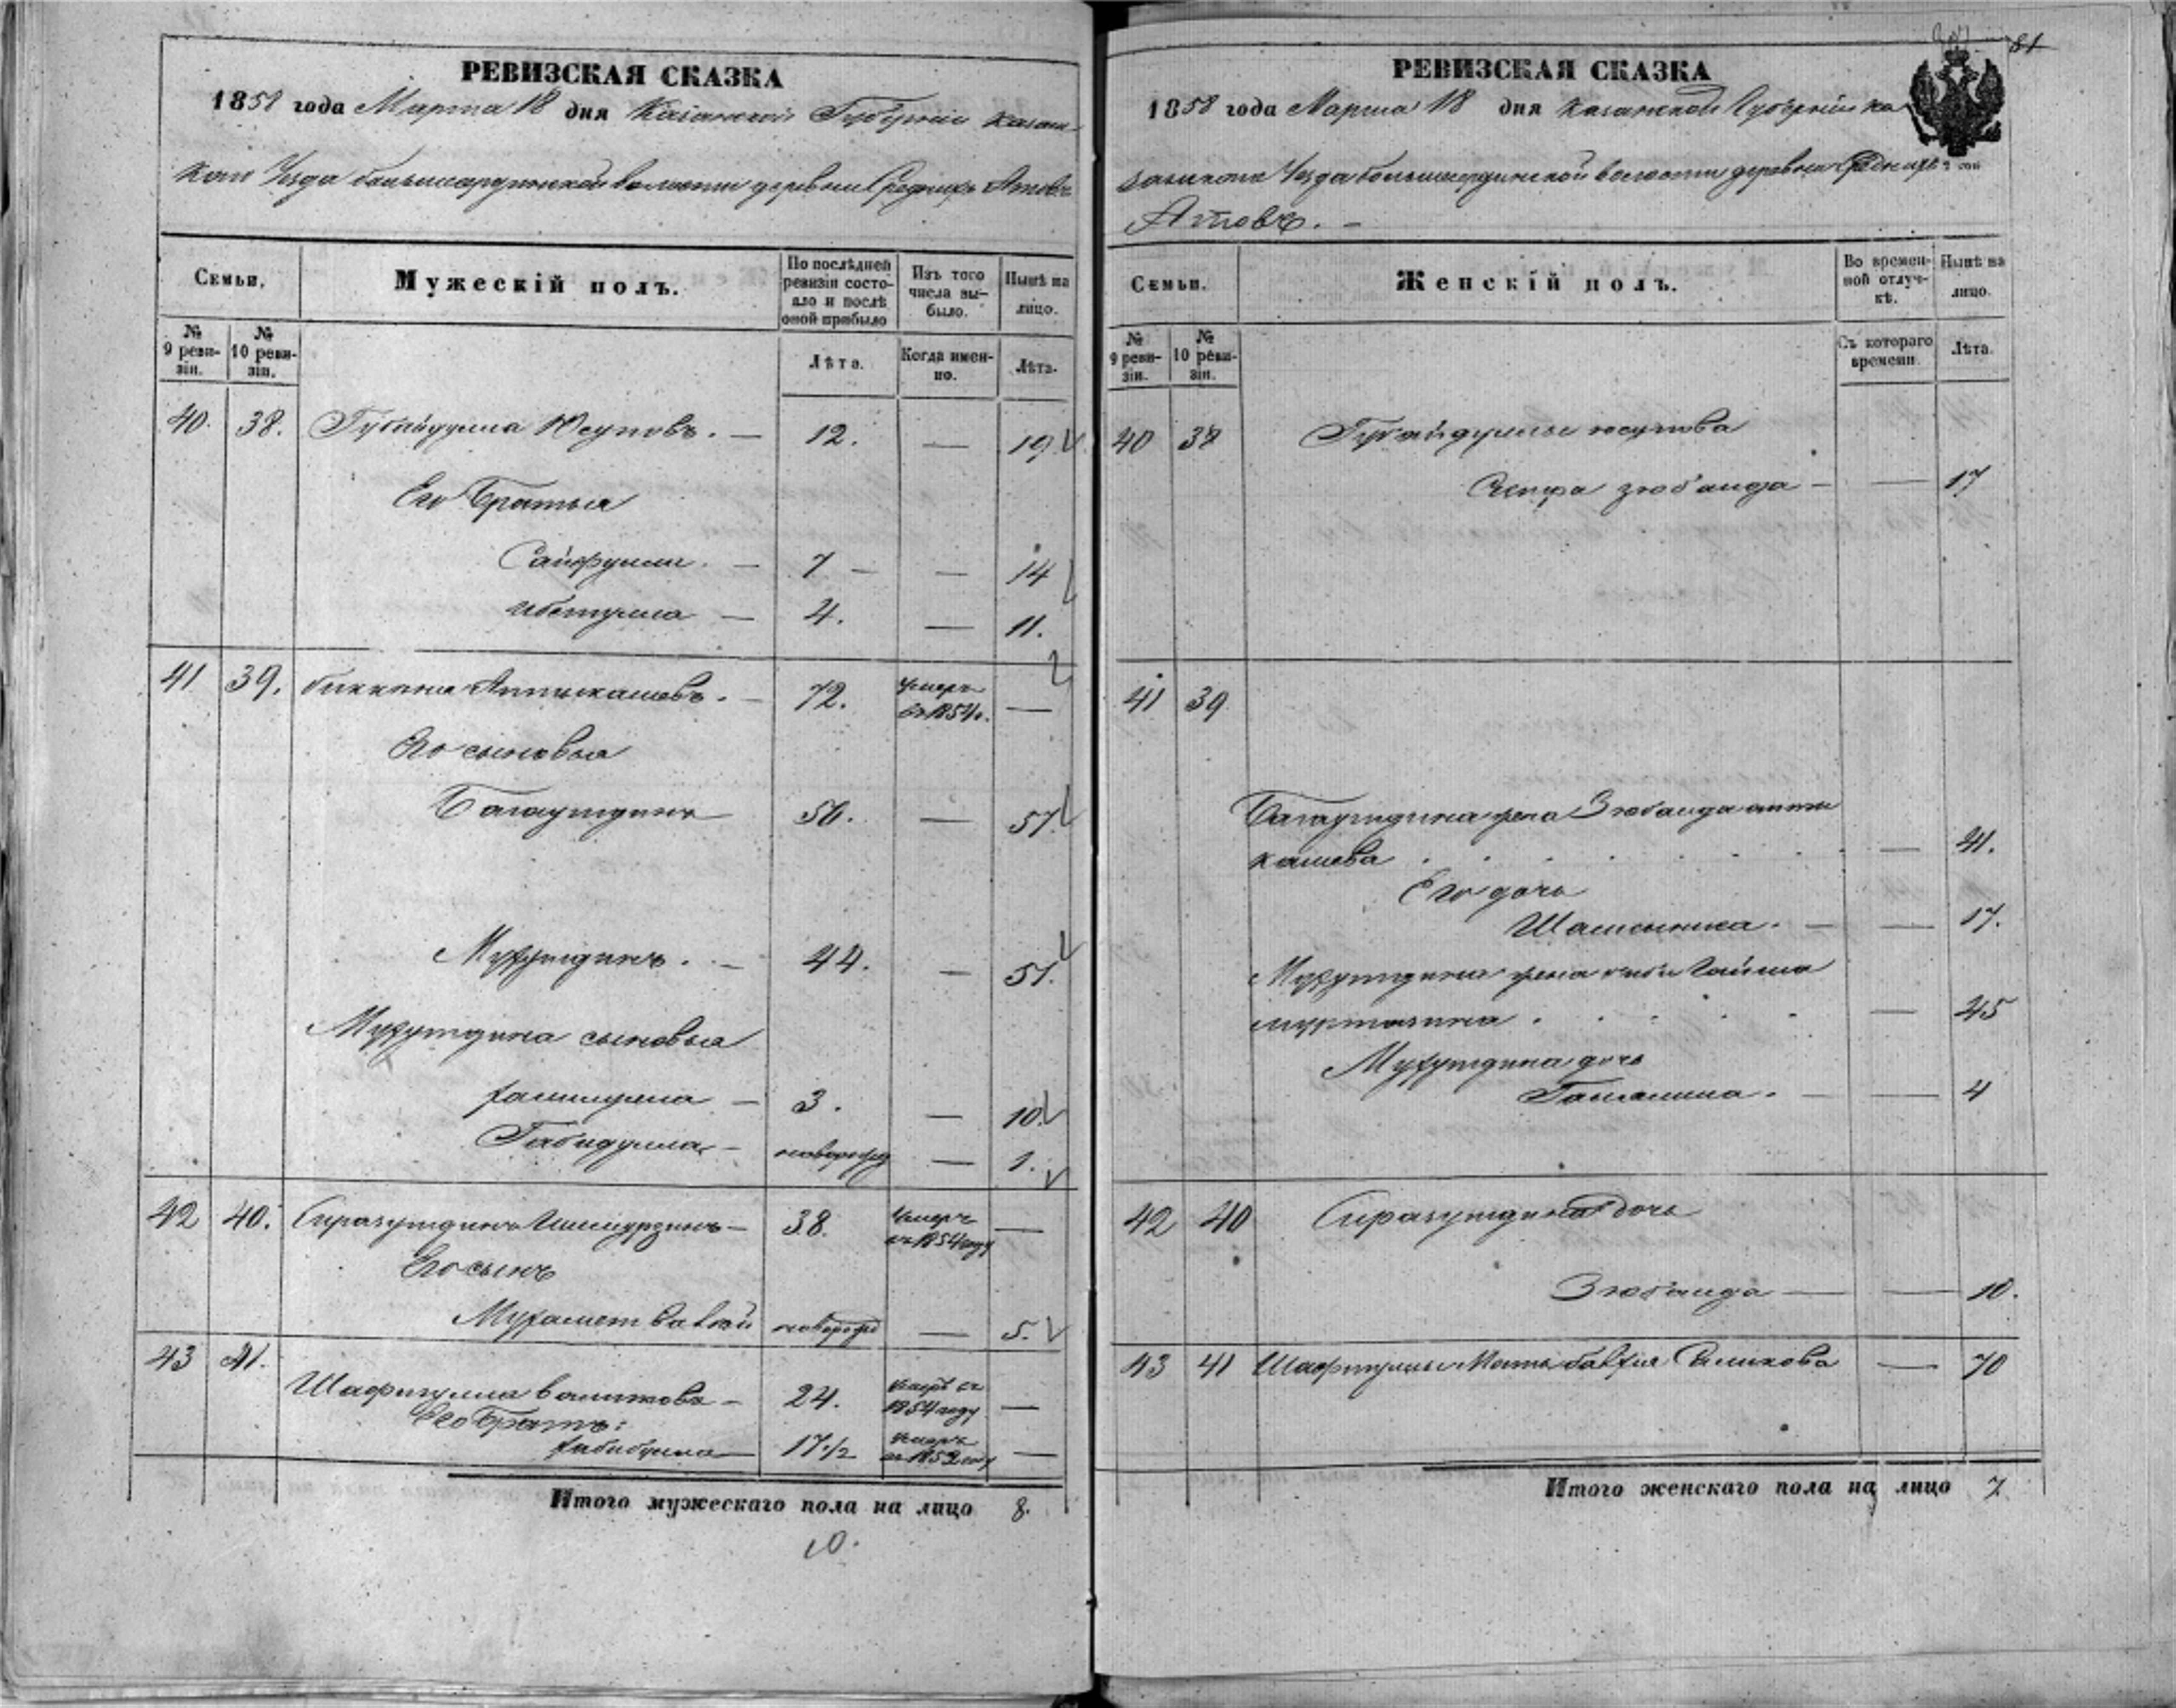 РЕВИЗСКАЯ СКАЗКА
1858 года Марта 18 дня Казанской Губерніи Казан-
каго Уезда большеардинской волости деревни Среднихъ Атовъ
Семьи.
Мужескій полъ.
По послѣдней ревизіи состояло и послѣ оной прибыло
Изъ того числа выбыло.
Нынѣ на лицо.
№ 9 ревизіи.
№ 10 ревизіи.
Лѣта.
Когда именно.
Лѣта.
40. 38. Губайдулла Юсуповъ. — 12. — 19
Его Братья
Сайфулла. — 7 — — 14
4. — 11.
41 39. 72. умеръ въ 1854 г. —
Его сыновья
Багаутдинъ 50. — 57.
Мухутдинъ. — 44. — 51.
Мухутдина сыновья
3. — 10.
Габидулла — новорожд — 1.
42 40. Сиразутдинъ — 38. умеръ въ 1854 году —
Его сынъ
Мухаметвалей новорожд — 5.
43 41.
Шафигулла — 24. умеръ въ 1854 году —
Его Братъ:
хабибулла — 17 1/2 умеръ въ 1852 году —
Итого мужескаго пола на лицо 8.
10.
81
РЕВИЗСКАЯ СКАЗКА
1858 года Марта 18 дня Казанской Губерніи Ка
занскаго Уезда большеардинской волости деревни Среднихъ
Атовъ. —
Семьи.
Женскій полъ.
Во временной отлучкѣ.
Нынѣ на лицо.
№ 9 ревизіи.
№ 10 ревизіи.
Съ котораго времени.
Лѣта.
40 38 Губайдуллы юсупова
зюбаида — — 17
41 39
Багаутдина жена Зюбаида
кашева — 41.
Его дочь
Шамсыниса. — — 17.
Мухутдина жена
муртазина — 45
Мухутдина дочь
— — 4
42 40 Сиразутдина дочь
Зюбаида — — 10.
43 41 Шафигуллы Мать — 70
Итого женскаго пола на лицо 7